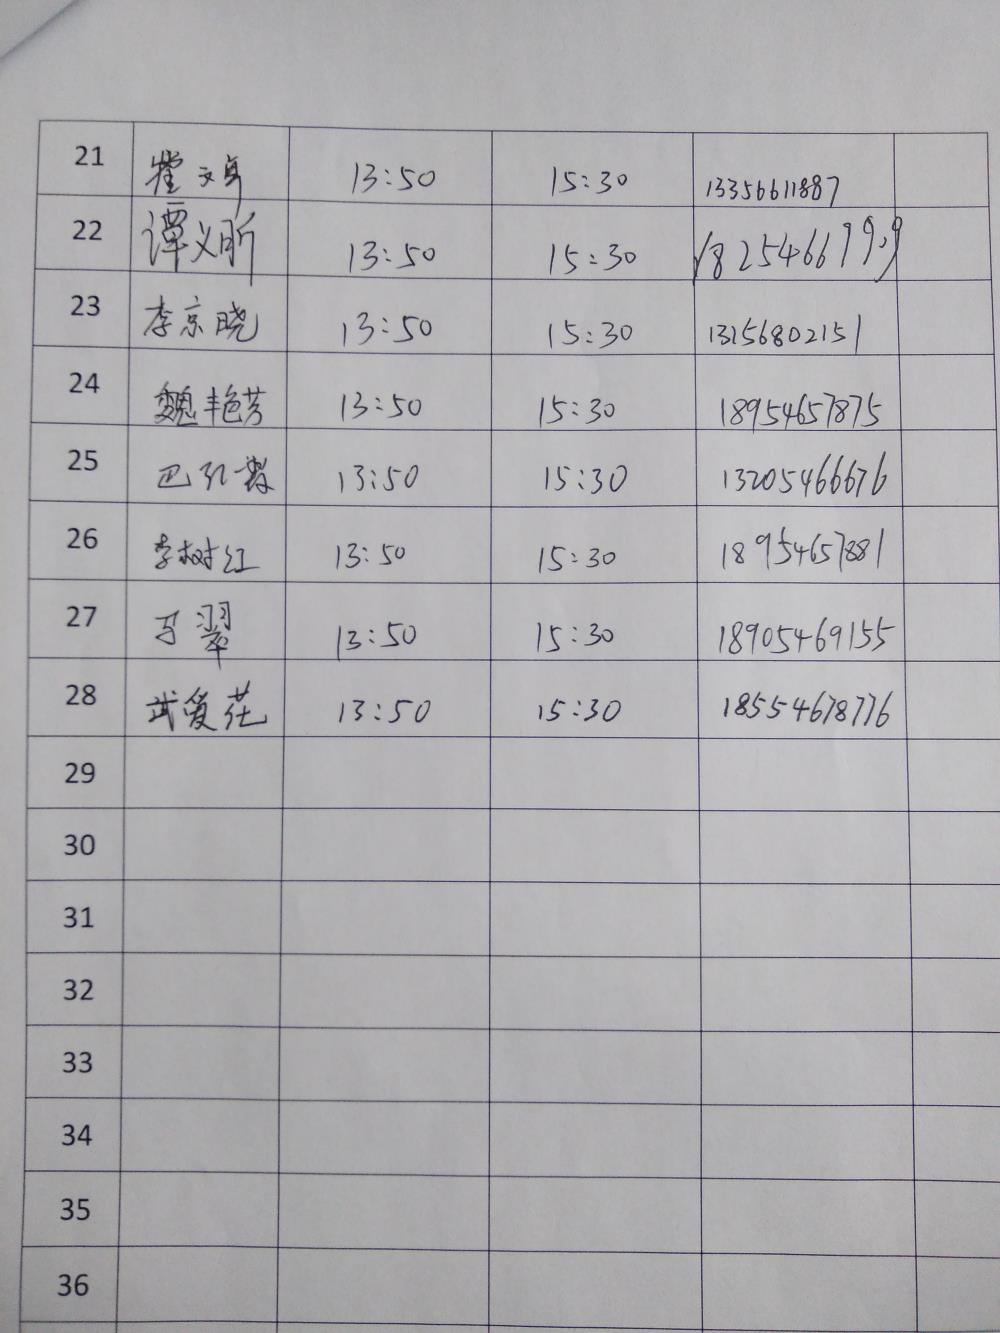 21 13:50 15:30 13356611887
22 谭义昕 13:50 15:30
23 李京晓 13:50 15:30 13156802151
24 魏艳芳 13:50 15:30 18954657875
25 巴孔 13:50 15:30 13205466676
26 李树红 13:50 15:30 18954657881
27 马翠 13:50 15:30 18905469155
28 武爱花 13:50 15:30 18554678776
29
30
31
32
33
34
35
36